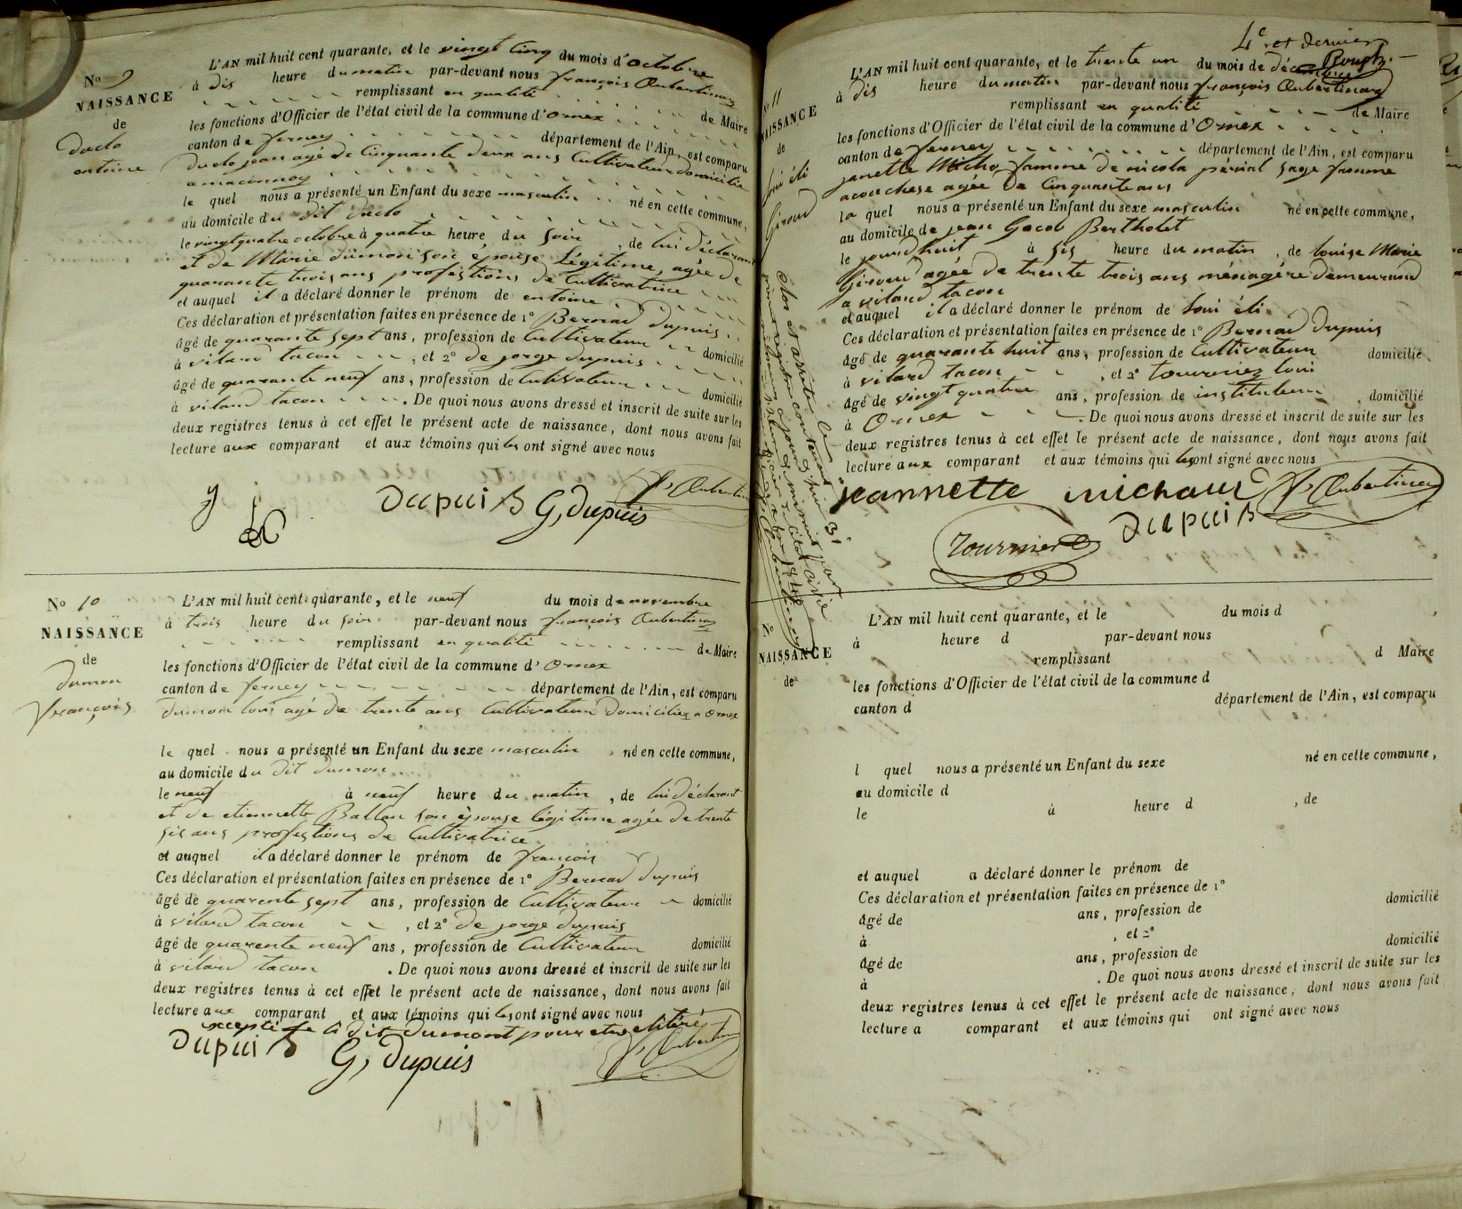 No 9
NAISSANCE
de
Duclo
antoine
L'AN mil huit cent quarante, et le vingt cinq du mois d'octobre
à dis heure du matin par-devant nous françois Aubertin
remplissant en qualité de Maire
les fonctions d'Officier de l'état civil de la commune d'Ornex
canton de ferney département de l'Ain, est comparu
duclo jean agé de Cinquante deux ans Cultivateur domicilié
a maconnex
le quel nous a présenté un Enfant du sexe masculin né en cette commune,
au domicile du dit duclo
le vingtquatre octobre à quatre heure du soir, de lui déclarant
et de Marie dumon son épouse Légitime, agée de
quarante trois ans profestions de Cultivatrice
et auquel il a déclaré donner le prénom de entoine
Ces déclaration et présentation faites en présence de 1° Bernad dupuis
âgé de quarante sept ans, profession de Cultivateur domicilié
à vilard tacon, et 2° de jorge dupuis
âgé de quarante neuf ans, profession de Cultivateur domicilié
à vilard tacon. De quoi nous avons dressé et inscrit de suite sur les
deux registres tenus à cet effet le présent acte de naissance, dont nous avons fait
lecture aux comparant et aux témoins qui les ont signé avec nous
Dupuis G, dupuis
No 10
NAISSANCE
de
dumon
françois
L'AN mil huit cent quarante, et le neuf du mois de novembre
à trois heure du soir par-devant nous françois Aubertin
remplissant en qualité de Maire
les fonctions d'Officier de l'état civil de la commune d'Ornex
canton de ferney département de l'Ain, est comparu
dumon loui agé de trente ans Cultivateur domiciliez a Ornex
le quel nous a présenté un Enfant du sexe masculin, né en cette commune,
au domicile du dit dumon
le neuf à neuf heure du matin, de lui déclarant
et de etiennette Ballan son épouse légitime agée de trente
sis ans profestions de Cultivatrice
et auquel il a déclaré donner le prénom de françois
Ces déclaration et présentation faites en présence de 1° Bernad dupuis
âgé de quarente sept ans, profession de Cultivateur domicilié
à vilard tacon, et 2° de jorge dupuis
âgé de quarente neuf ans, profession de Cultivateur domicilié
à vilard tacon. De quoi nous avons dressé et inscrit de suite sur les
deux registres tenus à cet effet le présent acte de naissance, dont nous avons fait
lecture aux comparant et aux témoins qui les ont signé avec nous
excepté le dit dumont pour etre elitéré
Dupuis G, dupuis
4e et dernier
No 11
NAISSANCE
de
loui éli
Giroud
L'AN mil huit cent quarante, et le trente un du mois de décembre
à dis heure du matin par-devant nous françois Aubertin
remplissant en qualité de Maire
les fonctions d'Officier de l'état civil de la commune d'Ornex
canton de ferney département de l'Ain, est comparu
janette Micho famme de nicola périal sage famme
acouchese agée de Cinquante ans
la quel nous a présenté un Enfant du sexe masculin né en cette commune,
au domicile de jean Jacob Bertholet
le jourdhuit à sis heure du matin, de louise Marie
Giroud agée de trente trois ans ménagère demeurand
a vilard tacon
et auquel il a déclaré donner le prénom de loui éli
Ces déclaration et présentation faites en présence de 1° Bernad dupuis
âgé de quarante huit ans, profession de Cultivateur domicilié
à vilard tacon, et 2° tournier loui
âgé de vingt quatre ans, profession de instituteur, domicilié
à Ornex. De quoi nous avons dressé et inscrit de suite sur les
deux registres tenus à cet effet le présent acte de naissance, dont nous avons fait
lecture aux comparant et aux témoins qui les ont signé avec nous
jeannette michaud
Dupuis
Tournier
No
NAISSANCE
de
L'AN mil huit cent quarante, et le du mois d
à heure d par-devant nous
remplissant d Maire
les fonctions d'Officier de l'état civil de la commune d
canton d département de l'Ain, est comparu
l quel nous a présenté un Enfant du sexe né en cette commune,
au domicile d
le à heure d, de
et auquel a déclaré donner le prénom de
Ces déclaration et présentation faites en présence de 1°
âgé de ans, profession de domicilié
à, et 2°
âgé de ans, profession de domicilié
à. De quoi nous avons dressé et inscrit de suite sur les
deux registres tenus à cet effet le présent acte de naissance, dont nous avons fait
lecture a comparant et aux témoins qui ont signé avec nous